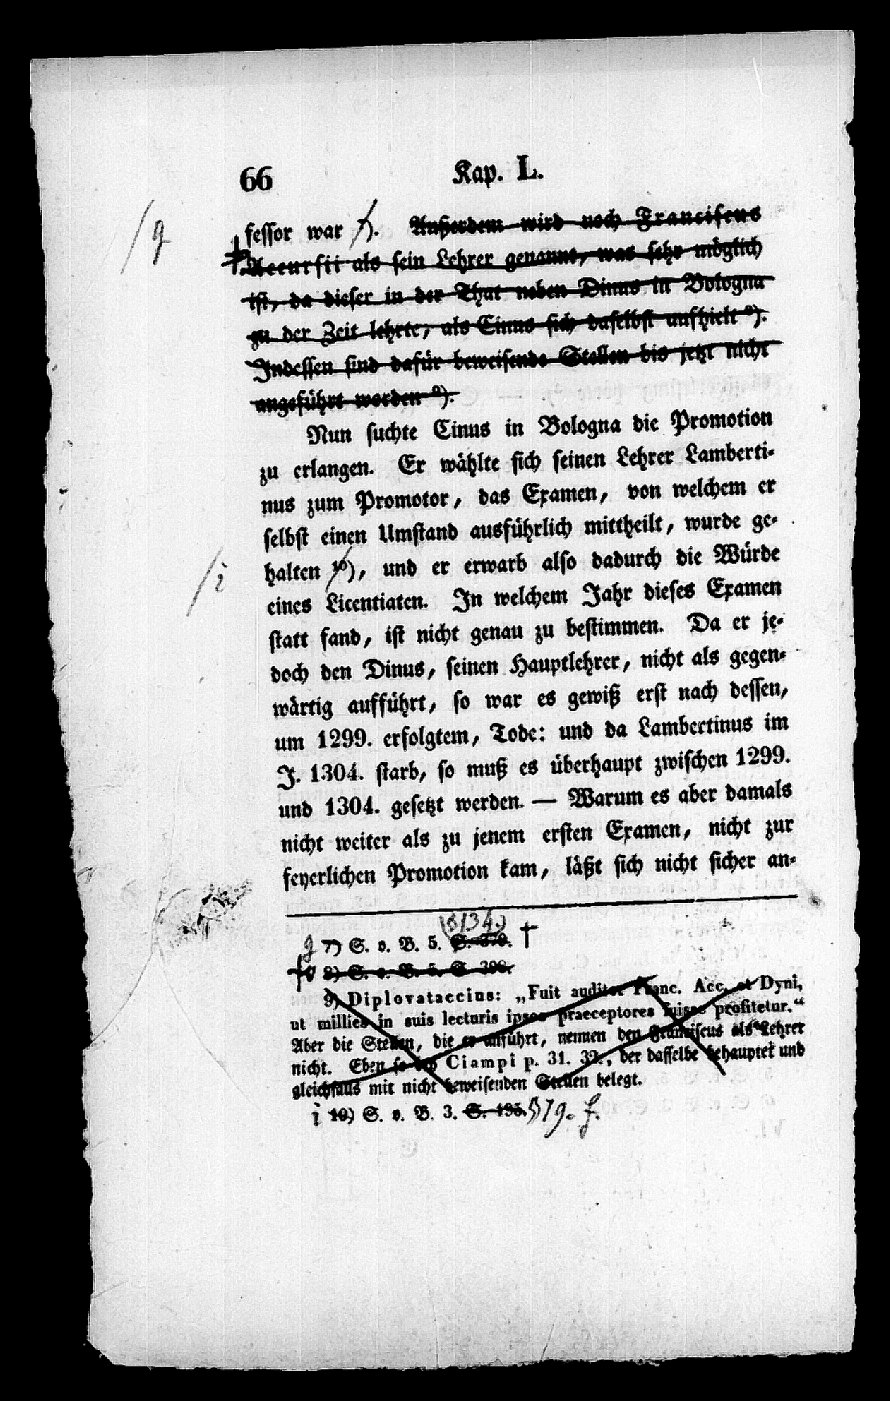 66 Kap. L.
g
fessor war 7). Außerdem wird noch Franciscus
Accursii als sein Lehrer genannt, was sehr möglich
ist, da dieser in der That neben Dinus in Bologna
zu der Zeit lehrte, als Cinus sich daselbst aufhielt 8).
Indessen sind dafür beweisende Stellen bis jetzt nicht
angeführt worden 9).
Nun suchte Cinus in Bologna die Promotion
zu erlangen. Er wählte sich seinen Lehrer Lamberti-
nus zum Promotor, das Examen, von welchem er
selbst einen Umstand ausführlich mittheilt, wurde ge-
i
halten 10), und er erwarb also dadurch die Würde
eines Licentiaten. In welchem Jahr dieses Examen
statt fand, ist nicht genau zu bestimmen. Da er je-
doch den Dinus, seinen Hauptlehrer, nicht als gegen-
wärtig aufführt, so war es gewiß erst nach dessen,
um 1299. erfolgtem, Tode: und da Lambertinus im
J. 1304. starb, so muß es überhaupt zwischen 1299.
und 1304. gesetzt werden. — Warum es aber damals
nicht weiter als zu jenem ersten Examen, nicht zur
feyerlichen Promotion kam, läßt sich nicht sicher an-
g 7) S. o. B. 5. S. 370. †
8) S. o. B. 5. S. 390.
9) Diplovataccius: „Fuit auditor Franc. Acc. et Dyni,
ut millies in suis lecturis ipsos praeceptores fuisse profitetur.“
Aber die Stellen, die er anführt, nennen den Franciscus als Lehrer
nicht. Eben so Ciampi p. 31. 32., der dasselbe behauptet und
gleichfalls mit nicht beweisenden Stellen belegt.
i 10) S. o. B. 3. S. 195. 579. f.